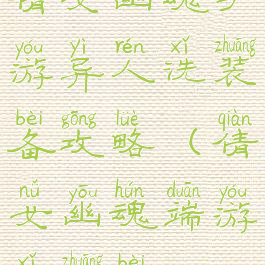 倩女幽魂手
yóu yì rén xǐ zhuāng
游异人洗装
bèi gōng lüè qiàn
备攻略(倩
nǚ yōu hún duān yóu
女幽魂端游
xǐ zhuāng bèi